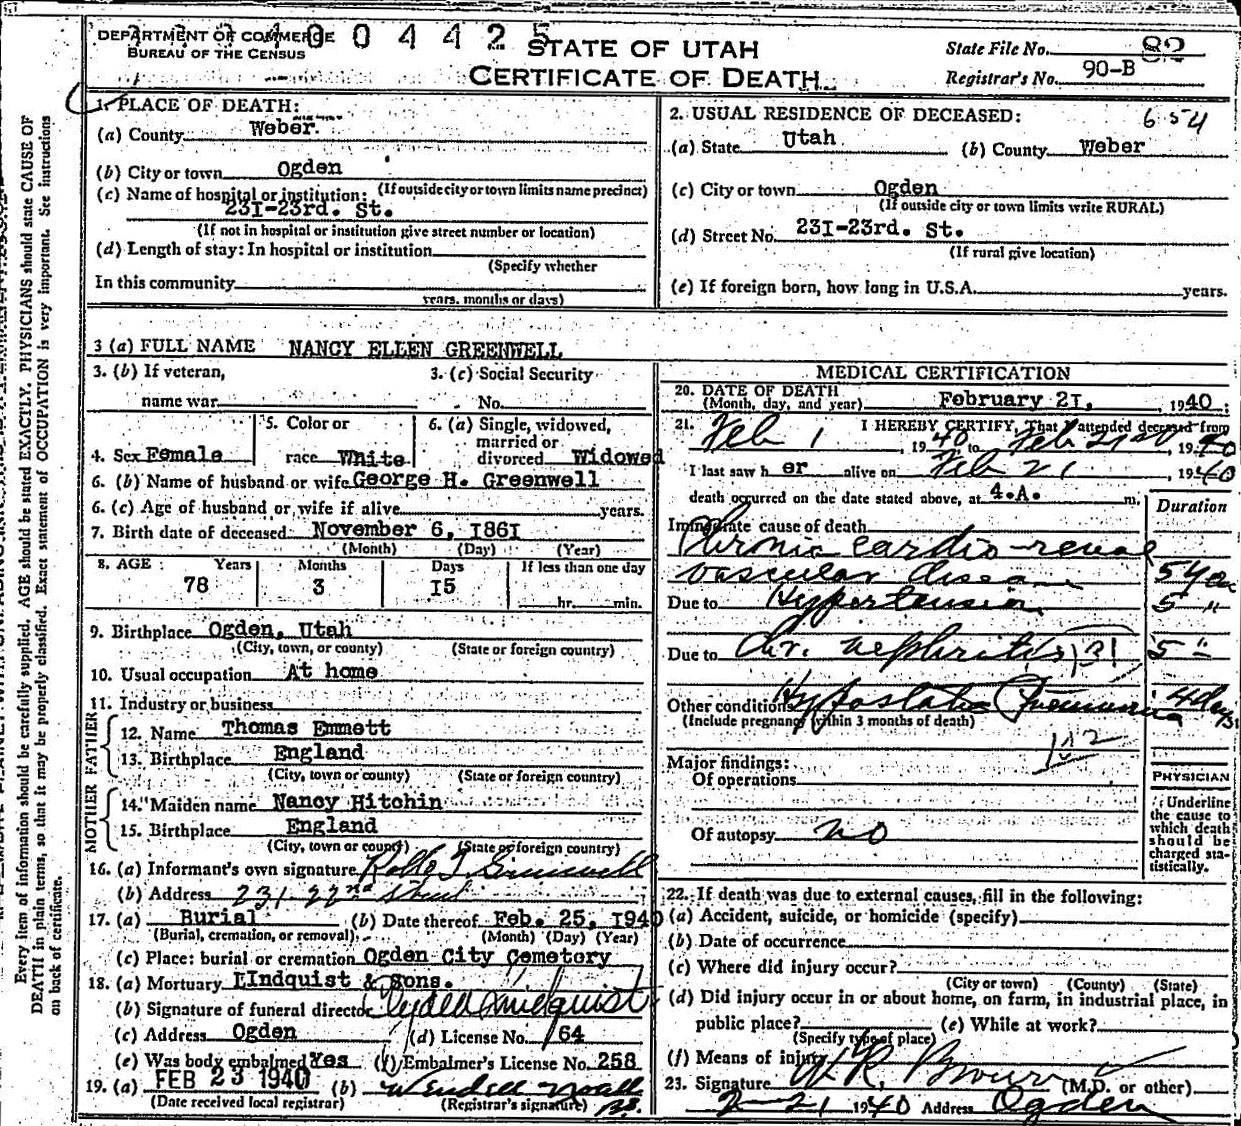 DEPARTMENT OF COMMERCE
BUREAU OF THE CENSUS
4004425
STATE OF UTAH
CERTIFICATE OF DEATH
State File No. 82
Registrar's No. 90-B
1. PLACE OF DEATH:
(a) County Weber.
(b) City or town Ogden
(If outside city or town limits name precinct)
(c) Name of hospital or institution:
23I-23rd. St.
(If not in hospital or institution give street number or location)
(d) Length of stay: In hospital or institution
(Specify whether
In this community
years, months or days)
2. USUAL RESIDENCE OF DECEASED: 654
(a) State Utah (b) County Weber
(c) City or town Ogden
(If outside city or town limits write RURAL)
(d) Street No. 23I-23rd. St.
(If rural give location)
(e) If foreign born, how long in U.S.A. years.
3 (a) FULL NAME NANCY ELLEN GREENWELL
3. (b) If veteran, 3. (c) Social Security
name war No.
4. Sex Female
5. Color or
race White
6. (a) Single, widowed,
married or
divorced Widowed
6. (b) Name of husband or wife George H. Greenwell
6. (c) Age of husband or wife if alive years.
7. Birth date of deceased November 6, I86I
(Month) (Day) (Year)
8. AGE: Years Months Days If less than one day
78 3 I5 hr. min.
9. Birthplace Ogden, Utah
(City, town, or county) (State or foreign country)
10. Usual occupation At home
11. Industry or business
FATHER
12. Name Thomas Emmett
13. Birthplace England
(City, town or county) (State or foreign country)
MOTHER
14. Maiden name Nancy Hitchin
15. Birthplace England
(City, town or county) (State or foreign country)
16. (a) Informant's own signature Greenwell
(b) Address 231-22nd Street
17. (a) Burial (b) Date thereof Feb. 25, I940
(Burial, cremation, or removal) (Month) (Day) (Year)
(c) Place: burial or cremation Ogden City Cemetery
18. (a) Mortuary LIndquist & Sons.
(b) Signature of funeral director Lindquist
(c) Address Ogden (d) License No. 64
(e) Was body embalmed Yes (f) Embalmer's License No. 258
19. (a) FEB 23 1940 (b) Wendell Noall
(Date received local registrar) (Registrar's signature)
MEDICAL CERTIFICATION
20. DATE OF DEATH
(Month, day, and year) February 2I, 1940
21. I HEREBY CERTIFY, That I attended deceased from
Feb 1 1940 to Feb 21st 1940
I last saw her alive on Feb 21 1940
death occurred on the date stated above, at 4.A. m.
Duration
Immediate cause of death
Chronic cardio-renal
vascular disease 5 yrs
Due to Hypertension 5 "
Due to Chr. nephritis 131 5 "
Other conditions Hypostatic Pneumonia 4 days
(Include pregnancy within 3 months of death)
Major findings:
Of operations
Of autopsy no
PHYSICIAN
Underline
the cause to
which death
should be
charged sta-
tistically.
22. If death was due to external causes, fill in the following:
(a) Accident, suicide, or homicide (specify)
(b) Date of occurrence
(c) Where did injury occur?
(City or town) (County) (State)
(d) Did injury occur in or about home, on farm, in industrial place, in
public place? (e) While at work?
(Specify type of place)
(f) Means of injury
23. Signature W R Brown (M.D. or other)
2-21 1940 Address Ogden
Every item of information should be carefully supplied. AGE should be stated EXACTLY. PHYSICIANS should state CAUSE OF
DEATH in plain terms, so that it may be properly classified. Exact statement of OCCUPATION is very important. See instructions
on back of certificate.